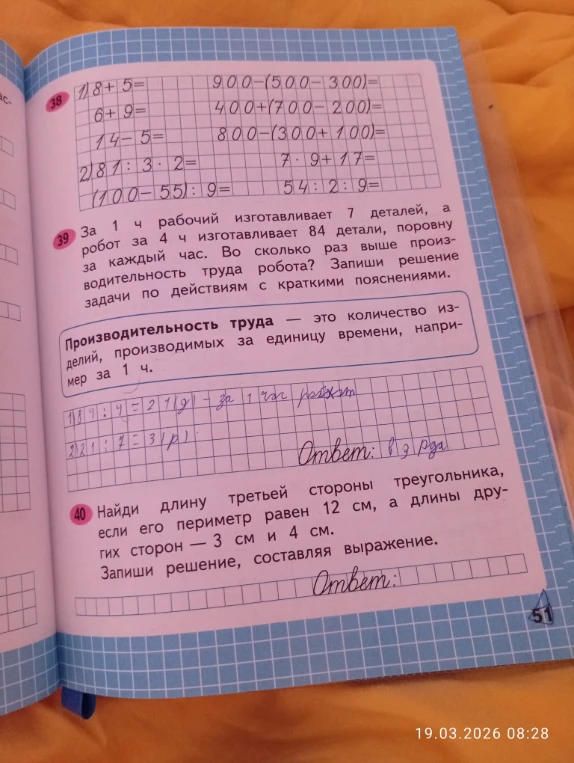 38 1) 8+5= 900-(500-300)=
6+9= 400+(700-200)=
14-5= 800-(300+100)=
2) 81:3·2= 7·9+17=
(100-55):9= 54:2:9=
39 За 1 ч рабочий изготавливает 7 деталей, а
робот за 4 ч изготавливает 84 детали, поровну
за каждый час. Во сколько раз выше произ-
водительность труда робота? Запиши решение
задачи по действиям с краткими пояснениями.
Производительность труда — это количество из-
делий, производимых за единицу времени, напри-
мер за 1 ч.
1) 84:4=21(д) - за 1 час робот
2) 21:7=3(р)
Ответ: в 3 раза
40 Найди длину третьей стороны треугольника,
если его периметр равен 12 см, а длины дру-
гих сторон — 3 см и 4 см.
Запиши решение, составляя выражение.
Ответ:
51
19.03.2026 08:28